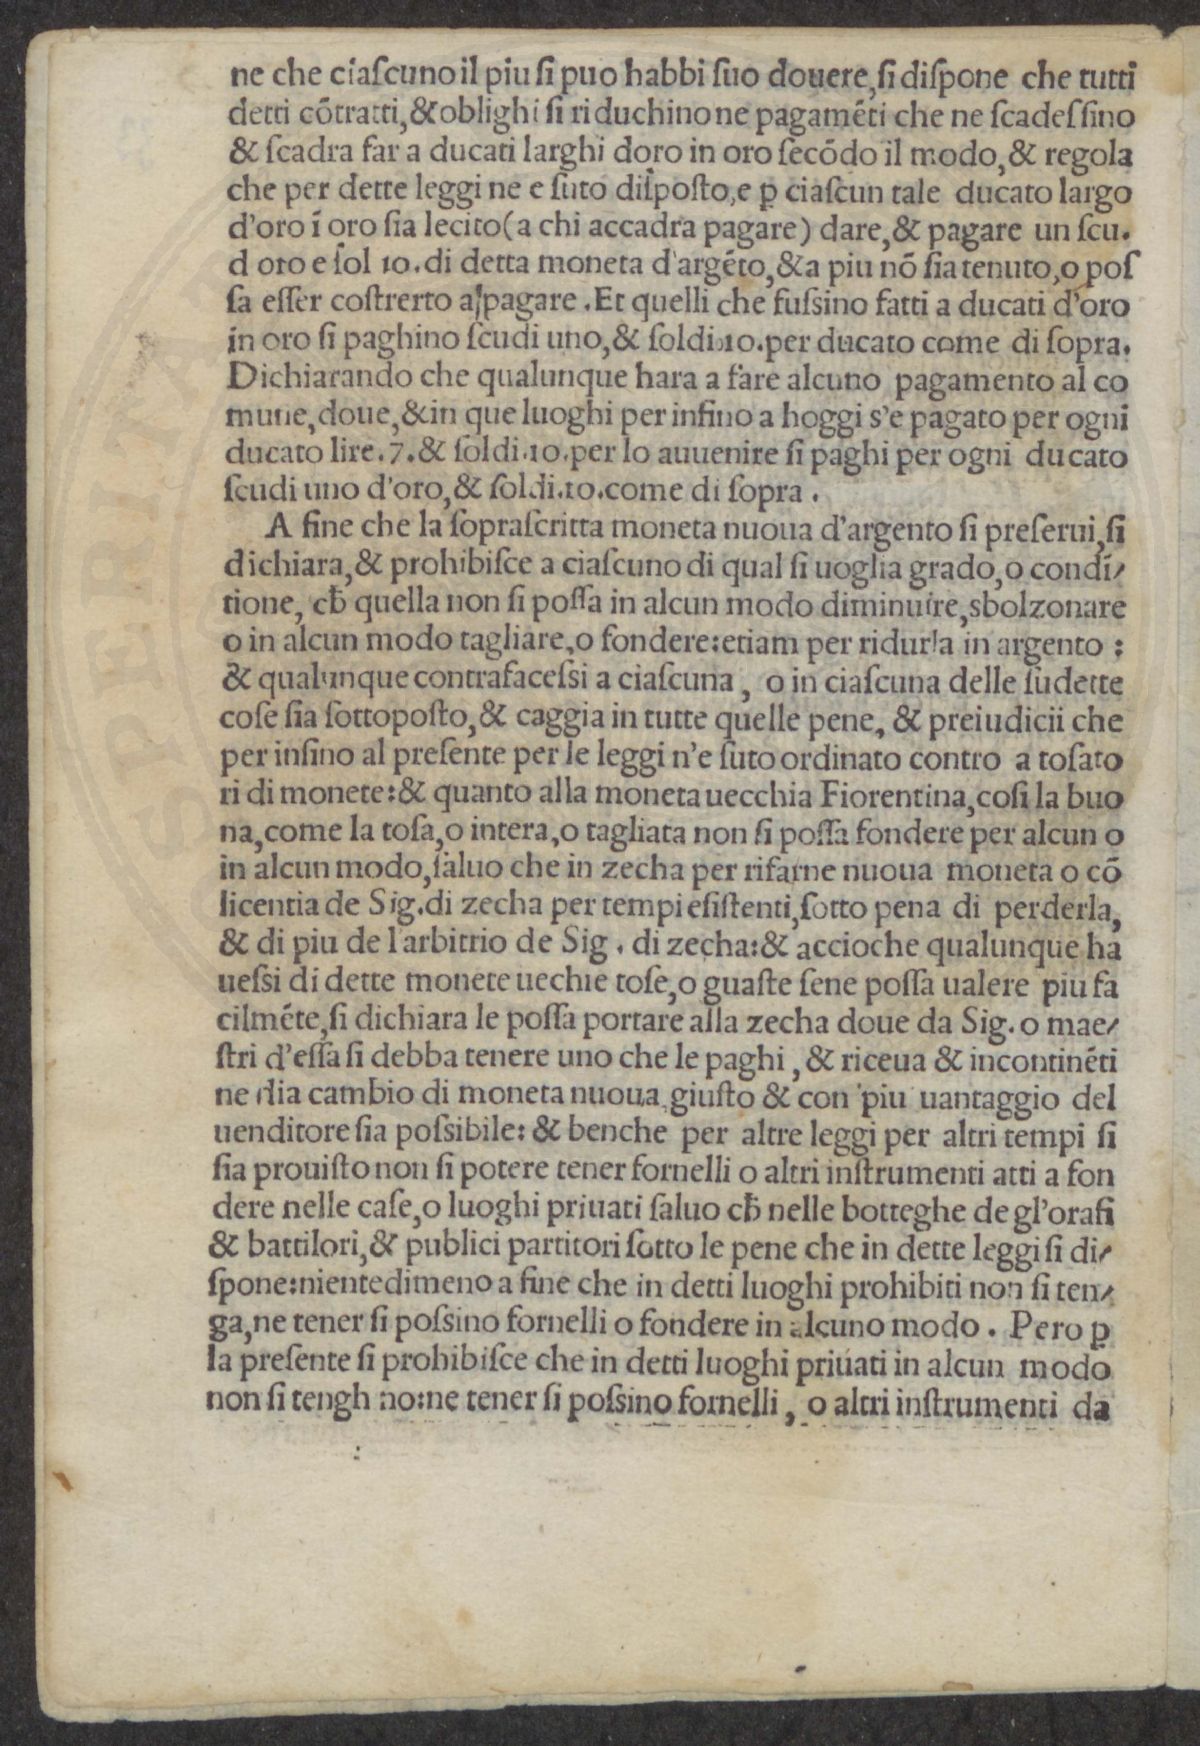 ne che ciaſcuno il piu ſi puo habbi ſuo douere, ſi diſpone che tutti
detti cōtratti, & oblighi ſi riduchino ne pagamēti che ne ſcadeſſino
& ſcadra far a ducati larghi doro in oro ſecōdo il modo, & regola
che per dette leggi ne e ſuto diſpoſto, e ꝑ ciaſcun tale ducato largo
d'oro ī oro ſia lecito (a chi accadra pagare) dare, & pagare un ſcu.
d oro e ſol 10. di detta moneta d'argēto, & a piu nō ſia tenuto, o poſ
ſa eſſer coſtretto a pagare. Et quelli che fuſſino fatti a ducati d'oro
in oro ſi paghino ſcudi uno, & ſoldi.10. per ducato come di ſopra.
Dichiarando che qualunque hara a fare alcuno pagamento al co
mune, doue, & in que luoghi per infino a hoggi s'e pagato per ogni
ducato lire.7. & ſoldi.10. per lo auuenire ſi paghi per ogni ducato
ſcudi uno d'oro, & ſoldi.10. come di ſopra.
A fine che la ſopraſcritta moneta nuoua d'argento ſi preſerui, ſi
dichiara, & prohibiſce a ciaſcuno di qual ſi uoglia grado, o condi/
tione, cħ quella non ſi poſſa in alcun modo diminuire, sbolzonare
o in alcun modo tagliare, o fondere: etiam per ridurla in argento:
& qualunque contrafaceſſi a ciaſcuna, o in ciaſcuna delle ſudette
coſe ſia ſottopoſto, & caggia in tutte quelle pene, & preiudicii che
per inſino al preſente per le leggi n'e ſuto ordinato contro a toſato
ri di monete: & quanto alla moneta uecchia Fiorentina, coſi la buo
na, come la toſa, o intera, o tagliata non ſi poſſa fondere per alcun o
in alcun modo, ſaluo che in zecha per rifarne nuoua moneta o cō
licentia de Sig. di zecha per tempi eſiſtenti, ſotto pena di perderla,
& di piu de l'arbitrio de Sig. di zecha: & accioche qualunque ha
ueſſi di dette monete uechie toſe, o guaſte ſene poſſa ualere piu fa
cilmēte, ſi dichiara le poſſa portare alla zecha doue da Sig. o mae/
ſtri d'eſſa ſi debba tenere uno che le paghi, & riceua & incontinēti
ne dia cambio di moneta nuoua, giuſto & con piu uantaggio del
uenditore ſia poſſibile: & benche per altre leggi per altri tempi ſi
ſia prouiſto non ſi potere tener fornelli o altri inſtrumenti atti a fon
dere nelle caſe, o luoghi priuati ſaluo cħ nelle botteghe de gl'orafi
& battilori, & publici partitori ſotto le pene che in dette leggi ſi di/
ſpone: nientedimeno a fine che in detti luoghi prohibiti non ſi ten/
ga, ne tener ſi poſſino fornelli o fondere in alcuno modo. Pero ꝑ
la preſente ſi prohibiſce che in detti luoghi priuati in alcun modo
non ſi tengh no: ne tener ſi poſſino fornelli, o altri inſtrumenti da